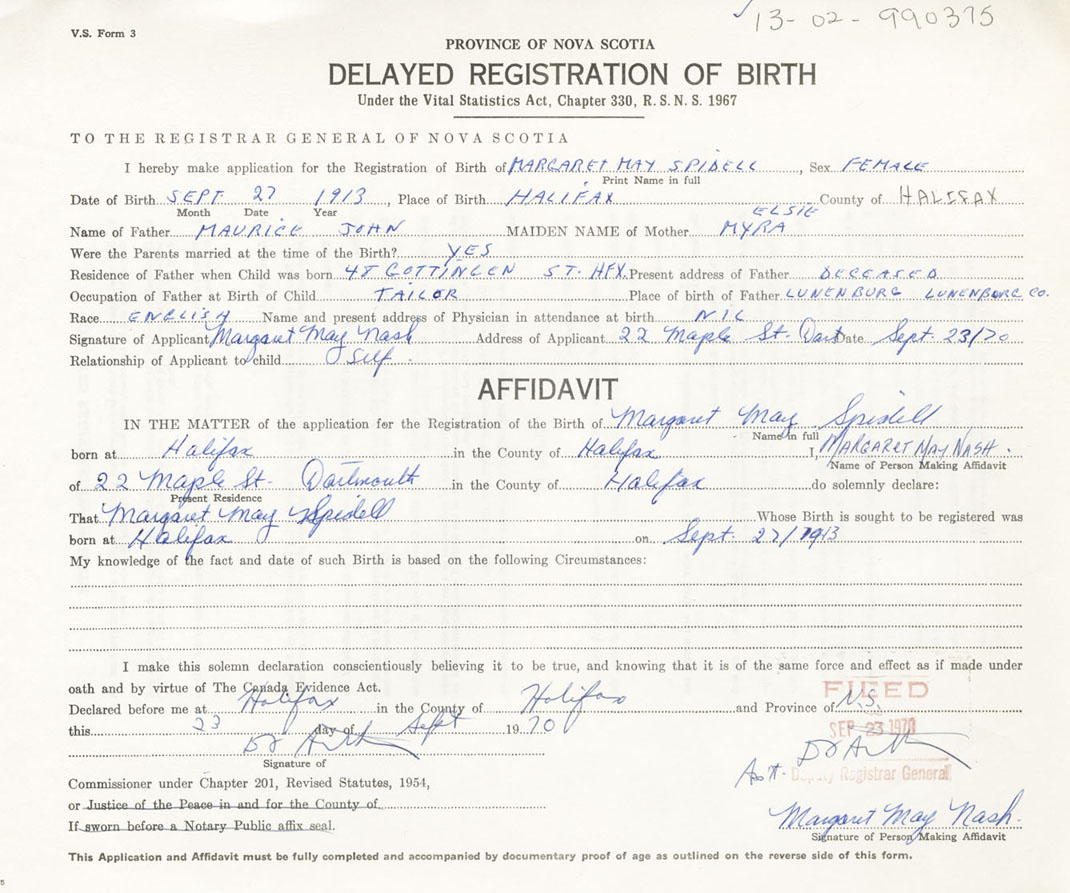 13-02-990375
V.S. Form 3
PROVINCE OF NOVA SCOTIA
DELAYED REGISTRATION OF BIRTH
Under the Vital Statistics Act, Chapter 330, R.S.N.S. 1967
TO THE REGISTRAR GENERAL OF NOVA SCOTIA
I hereby make application for the Registration of Birth of MARGARET MAY SPIDELL, Sex FEMALE
Print Name in full
Date of Birth SEPT 27 1913, Place of Birth HALIFAX County of HALIFAX
Month Date Year
ELSIE
Name of Father MAURICE JOHN MAIDEN NAME of Mother MYRA
Were the Parents married at the time of the Birth? YES
Residence of Father when Child was born GOTTINGEN ST. HFX. Present address of Father DECEASED
Occupation of Father at Birth of Child TAILOR Place of birth of Father LUNENBURG LUNENBURG CO.
Race ENGLISH Name and present address of Physician in attendance at birth NIL
Signature of Applicant Margaret May Nash Address of Applicant 22 Maple St. Dart Date Sept. 23/70
Relationship of Applicant to child Self.
AFFIDAVIT
IN THE MATTER of the application for the Registration of the Birth of Margaret May Spidell
Name in full
born at Halifax in the County of Halifax I, MARGARET MAY NASH.
Name of Person Making Affidavit
of 22 Maple St. Dartmouth in the County of Halifax do solemnly declare:
Present Residence
That Margaret May Spidell Whose Birth is sought to be registered was
born at Halifax on Sept. 27/1913
My knowledge of the fact and date of such Birth is based on the following Circumstances:
I make this solemn declaration conscientiously believing it to be true, and knowing that it is of the same force and effect as if made under
oath and by virtue of The Canada Evidence Act.
FILED
Declared before me at Halifax in the County of Halifax and Province of N.S.
this 23 day of Sept 1970
SEP 23 1970
Signature of
Commissioner under Chapter 201, Revised Statutes, 1954,
Deputy Registrar General
or Justice of the Peace in and for the County of
If sworn before a Notary Public affix seal.
Margaret May Nash.
Signature of Person Making Affidavit
This Application and Affidavit must be fully completed and accompanied by documentary proof of age as outlined on the reverse side of this form.